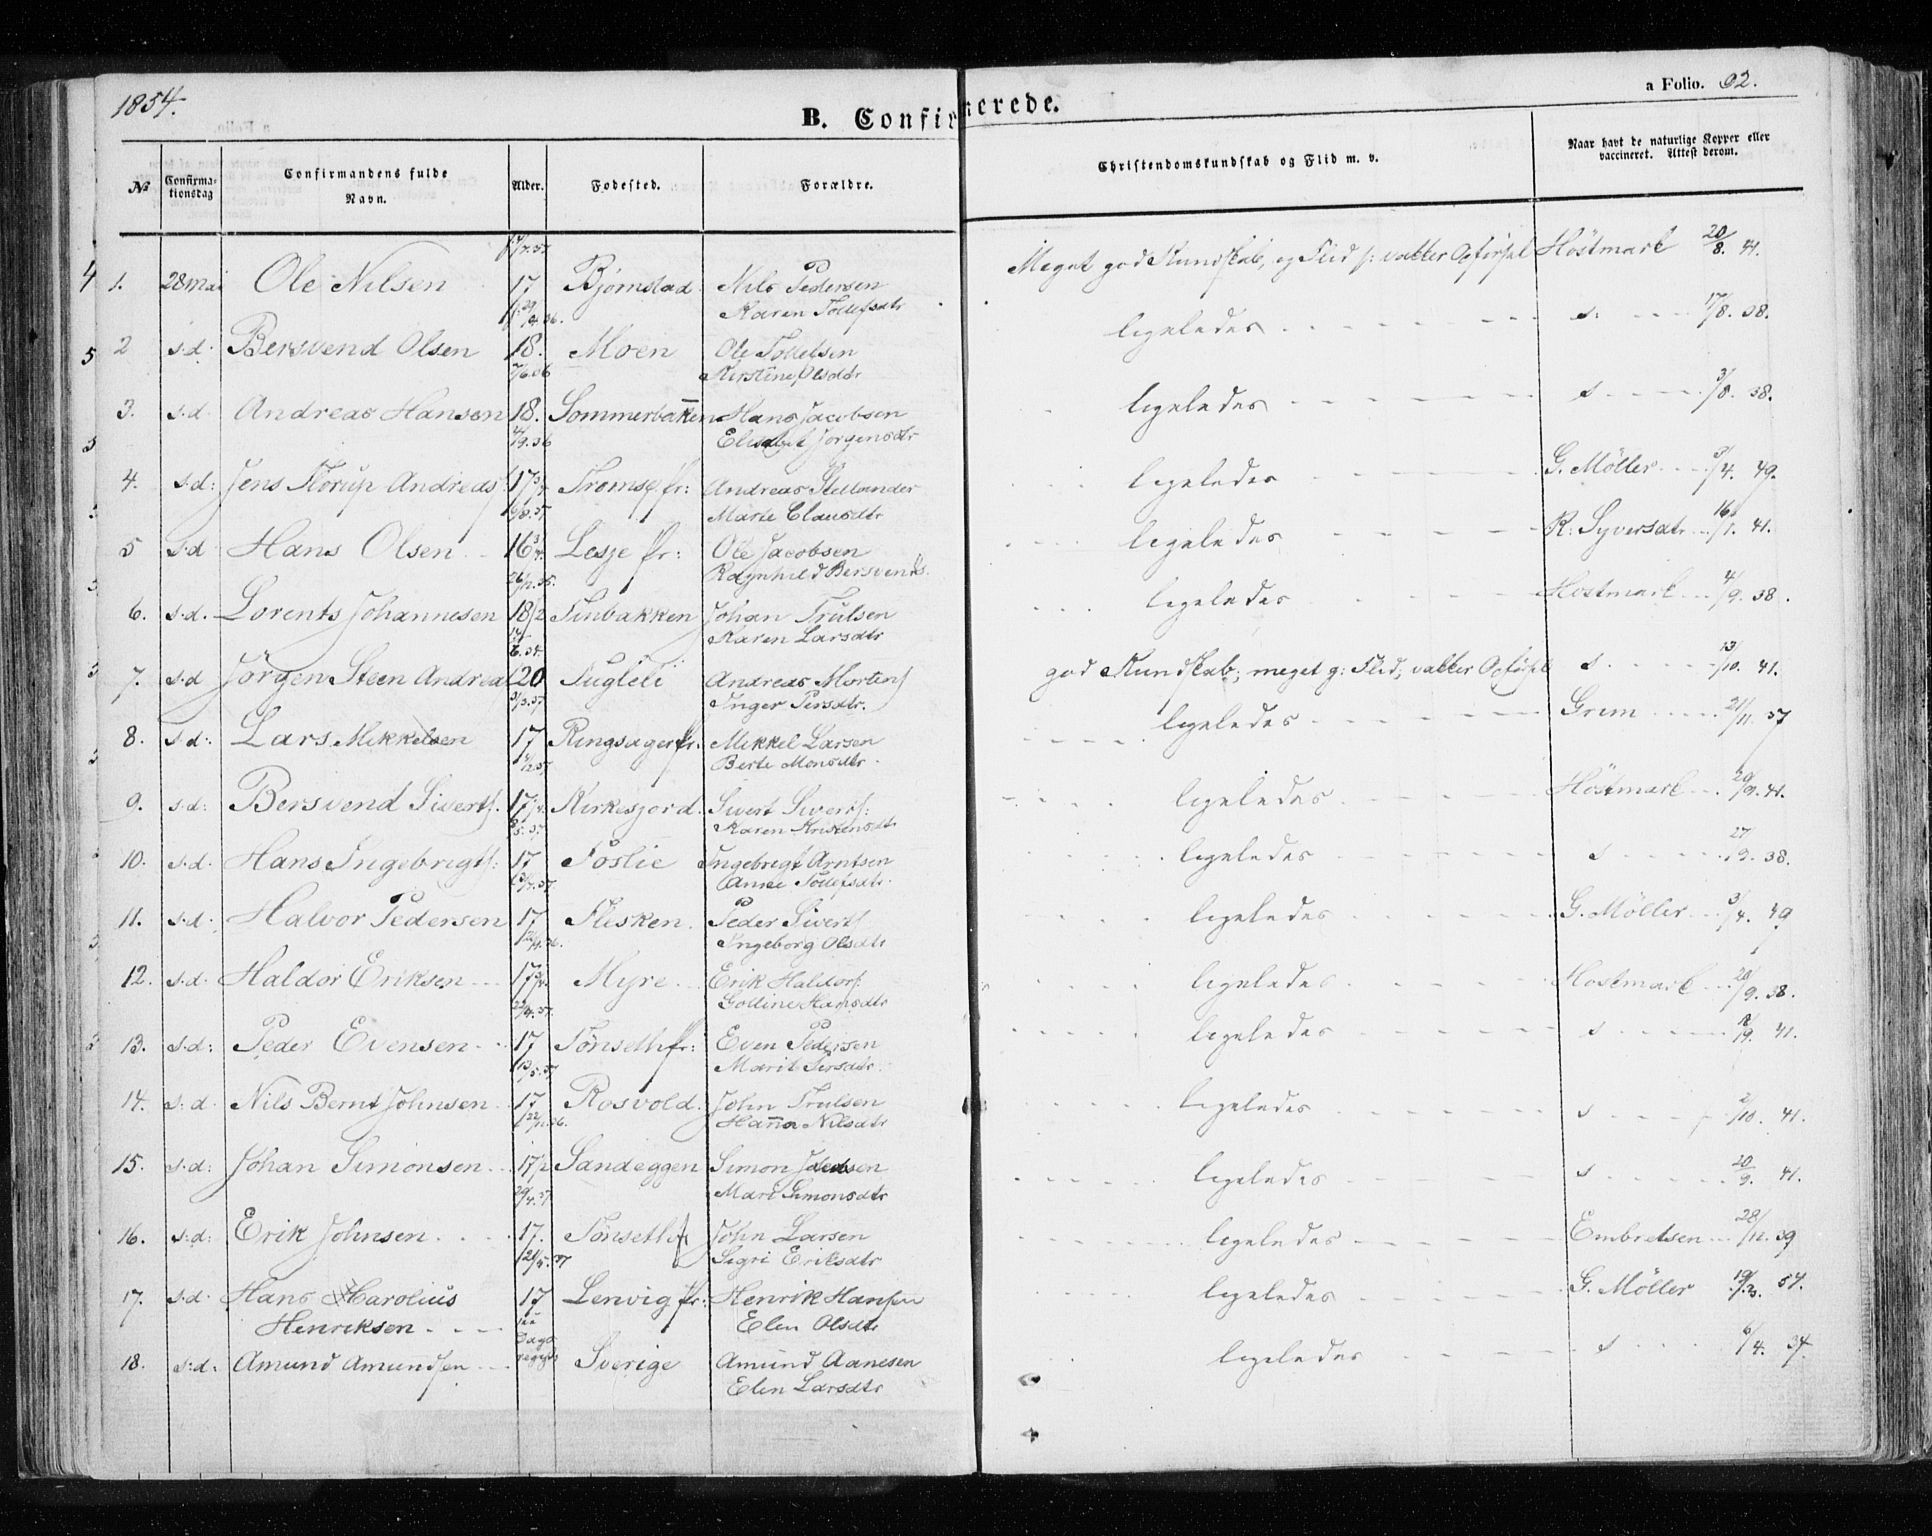 1854.
B. Confirmerede.
a Folio. 92.
№
Confirma-
tionsdag
Confirmandens fulde
Navn.
Alder.
Fødested.
Forældre.
Christendomskundskab og Flid m. v.
Naar havt de naturlige Kopper eller
vaccineret. Attest derom.
1. 28 mai Ole Nilsen 17 Bjørnstad Nils Pedersen Meget god Kundskab, og Flid s: vakker Opførsel Höstmark 20/8. 41.
Karen Tollefsdtr
2 s.d: Bersvend Olsen 18. Moen Ole Tollefsen ligeledes s: 17/8. 38.
Kirstine Olsdtr
3. s.d. Andreas Hansen 18. Sommerbakken Hans Jacobsen ligeledes s 3/8. 38.
Elisabet Jørgensdtr
4. s.d: Jens Andreas 17 3/4 Tromsø pr: Andreas Stellander ligeledes G. Möller 3/4. 49.
Marte Clausdtr
5 s.d Hans Olsen 16 3/4 Lesje pr: Ole Jacobsen ligeledes R: Syversdtr 16/1. 41.
Ragnhild Bersvends.
6. s.d. Lorents Johannesen 18 1/2 Finbakken Johan Trulsen ligeledes Höstmark 4/9. 38.
Karen Larsdtr
7. s.d Jörgen Steen Andreas 20 Fugleli Andreas Mortens god Kundskab; meget g: Flid; vakker Opførsel s 13/10. 41.
Inger Persdtr.
8. s.d: Lars Mikkelsen 17 Ringsager pr: Mikkel Larsen ligeledes Grim 21/11. 37
Berte Monsdtr.
9. s.d: Bersvend Siverts. 17 Kirkesjord. Sivert Siverts: ligeledes Höstmark 29/9. 41.
Karen Kristensdtr
10. s.d. Hans Ingebrigts: 17 Foslie Ingebrigt Arntsen ligeledes s 27/9. 38.
Anne Tollefsdtr.
11. s.d. Halvor Pedersen 17 Flesken. Peder Siverts ligeledes G. Möller 3/4. 49
Ingeborg Olsdtr
12. s.d. Haldor Eriksen 17 3/4. Myre Erik Haldors: ligeledes Höstmark 20/9. 38.
Golline Hansdtr
13. s.d: Peder Evensen 17 Tönseth pr: Even Pedersen ligeledes s 41.
Marit Persdtr.
14. s.d. Nils Bernt Johnsen 17 Rosvold. John Trulsen ligeledes s 2/10. 41.
Hanna Nilsdtr
15. s.d: Johan Simonsen 17 1/2 Sandeggen Simon ligeledes s 20/9. 41.
Mari Simonsdtr
16. s:d: Erik Johnsen 17. Tönseth John Larsen ligeledes Embretsen 28/12. 39
Sigri Eriksdtr
17. s.d. Hans Harolius 17 Lenvig pr: Henrik Hansen ligeledes G. Möller 19/3. 54.
Henriksen Elen Olsdtr
18. s:d: Amund Amundsen Sverige Amund Aanesen ligeledes s 6/4. 37.
Elen Larsdtr